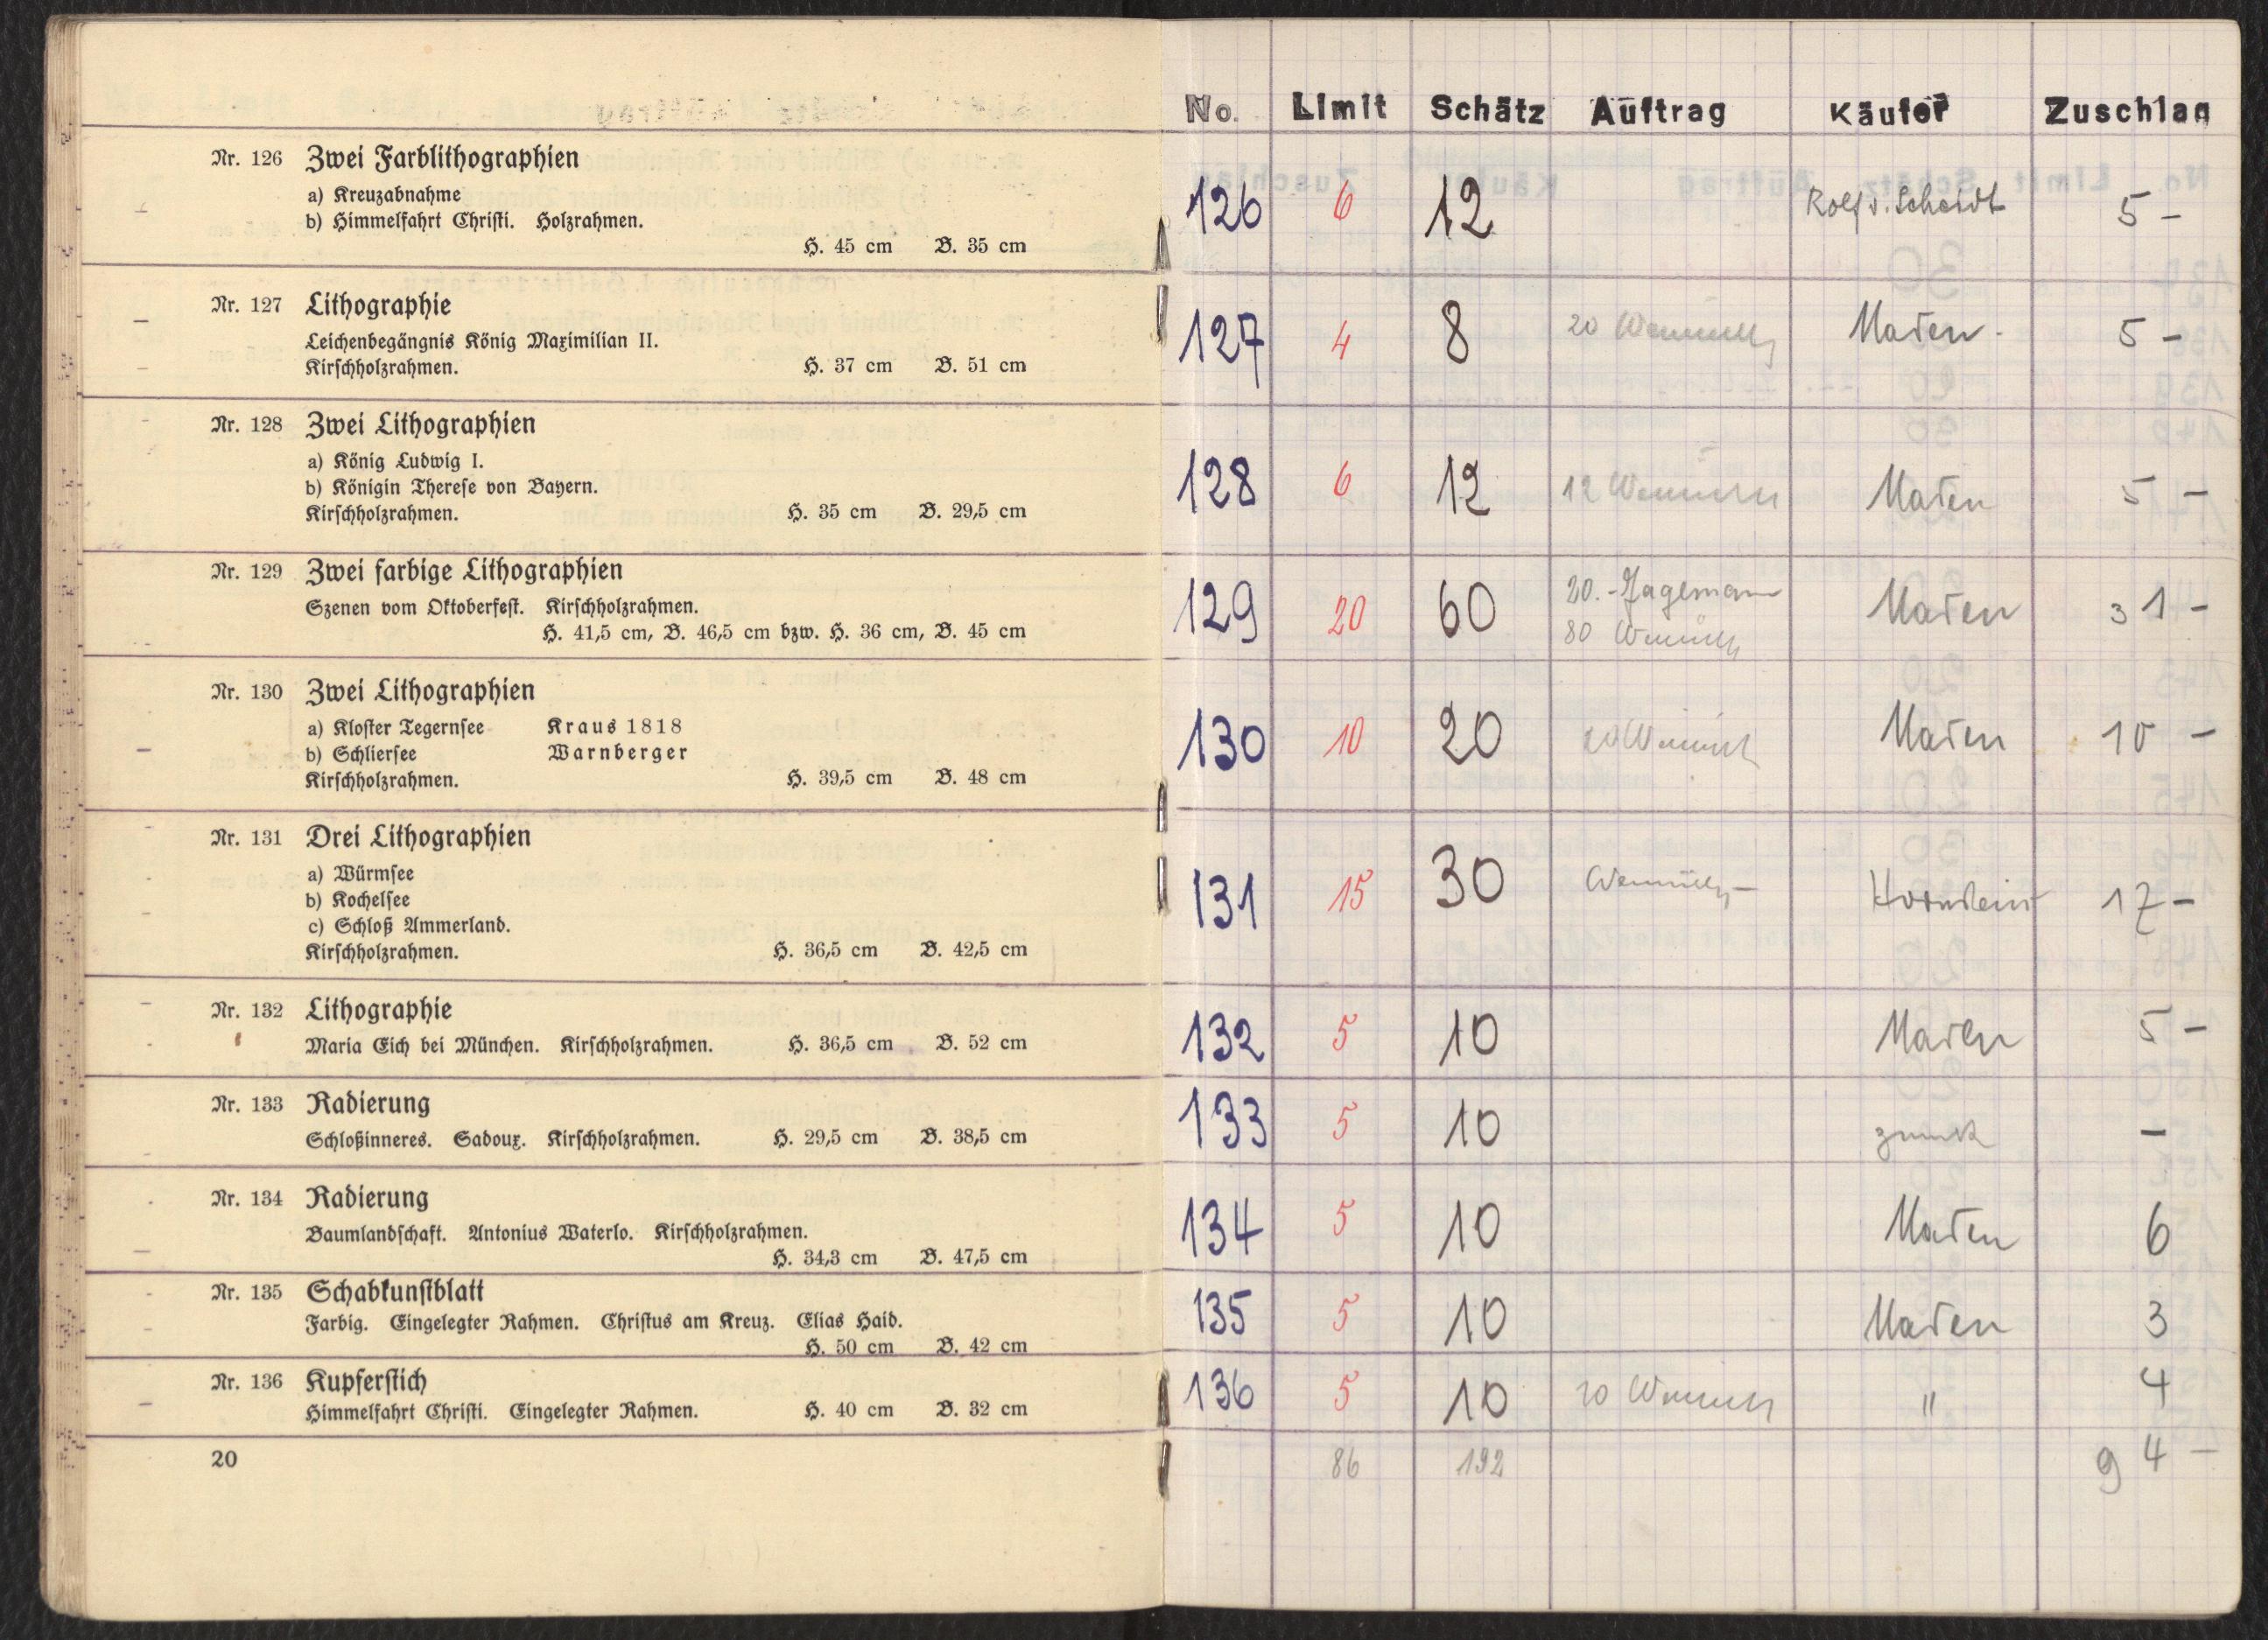 Nr. 126 Zwei Farblithographien
a) Kreuzabnahme
b) Himmelfahrt Christi. Holzrahmen.
H. 45 cm B. 35 cm
Nr. 127 Lithographie
Leichenbegängnis König Maximilian II.
Kirschholzrahmen. H. 37 cm B. 51 cm
Nr. 128 Zwei Lithographien
a) König Ludwig I.
b) Königin Therese von Bayern.
Kirschholzrahmen. H. 35 cm B. 29,5 cm
Nr. 129 Zwei farbige Lithographien
Szenen vom Oktoberfest. Kirschholzrahmen.
H. 41,5 cm, B. 46,5 cm bzw. H. 36 cm, B. 45 cm
Nr. 130 Zwei Lithographien
a) Kloster Tegernsee Kraus 1818
b) Schliersee Warnberger
Kirschholzrahmen. H. 39,5 cm B. 48 cm
Nr. 131 Drei Lithographien
a) Würmsee
b) Kochelsee
c) Schloß Ammerland.
Kirschholzrahmen. H. 36,5 cm B. 42,5 cm
Nr. 132 Lithographie
Maria Eich bei München. Kirschholzrahmen. H. 36,5 cm B. 52 cm
Nr. 133 Radierung
Schloßinneres. Sadoux. Kirschholzrahmen. H. 29,5 cm B. 38,5 cm
Nr. 134 Radierung
Baumlandschaft. Antonius Waterlo. Kirschholzrahmen.
H. 34,3 cm B. 47,5 cm
Nr. 135 Schabkunstblatt
Farbig. Eingelegter Rahmen. Christus am Kreuz. Elias Haid.
H. 50 cm B. 42 cm
Nr. 136 Kupferstich
Himmelfahrt Christi. Eingelegter Rahmen. H. 40 cm B. 32 cm
20
No. Limit Schätz Auftrag Käufer Zuschlag
126 6 12 Rolf v. Scheidt 5 -
127 4 8 20 5 -
128 6 12 12 5 -
129 20 60 20.- Hagemann 31 -
80
130 10 20 20 10 -
131 15 30 Hornstein 17 -
132 5 10 5 -
133 5 10 zurück -
134 5 10 6
135 5 10 3
136 5 10 20 " 4
86 192 94 -